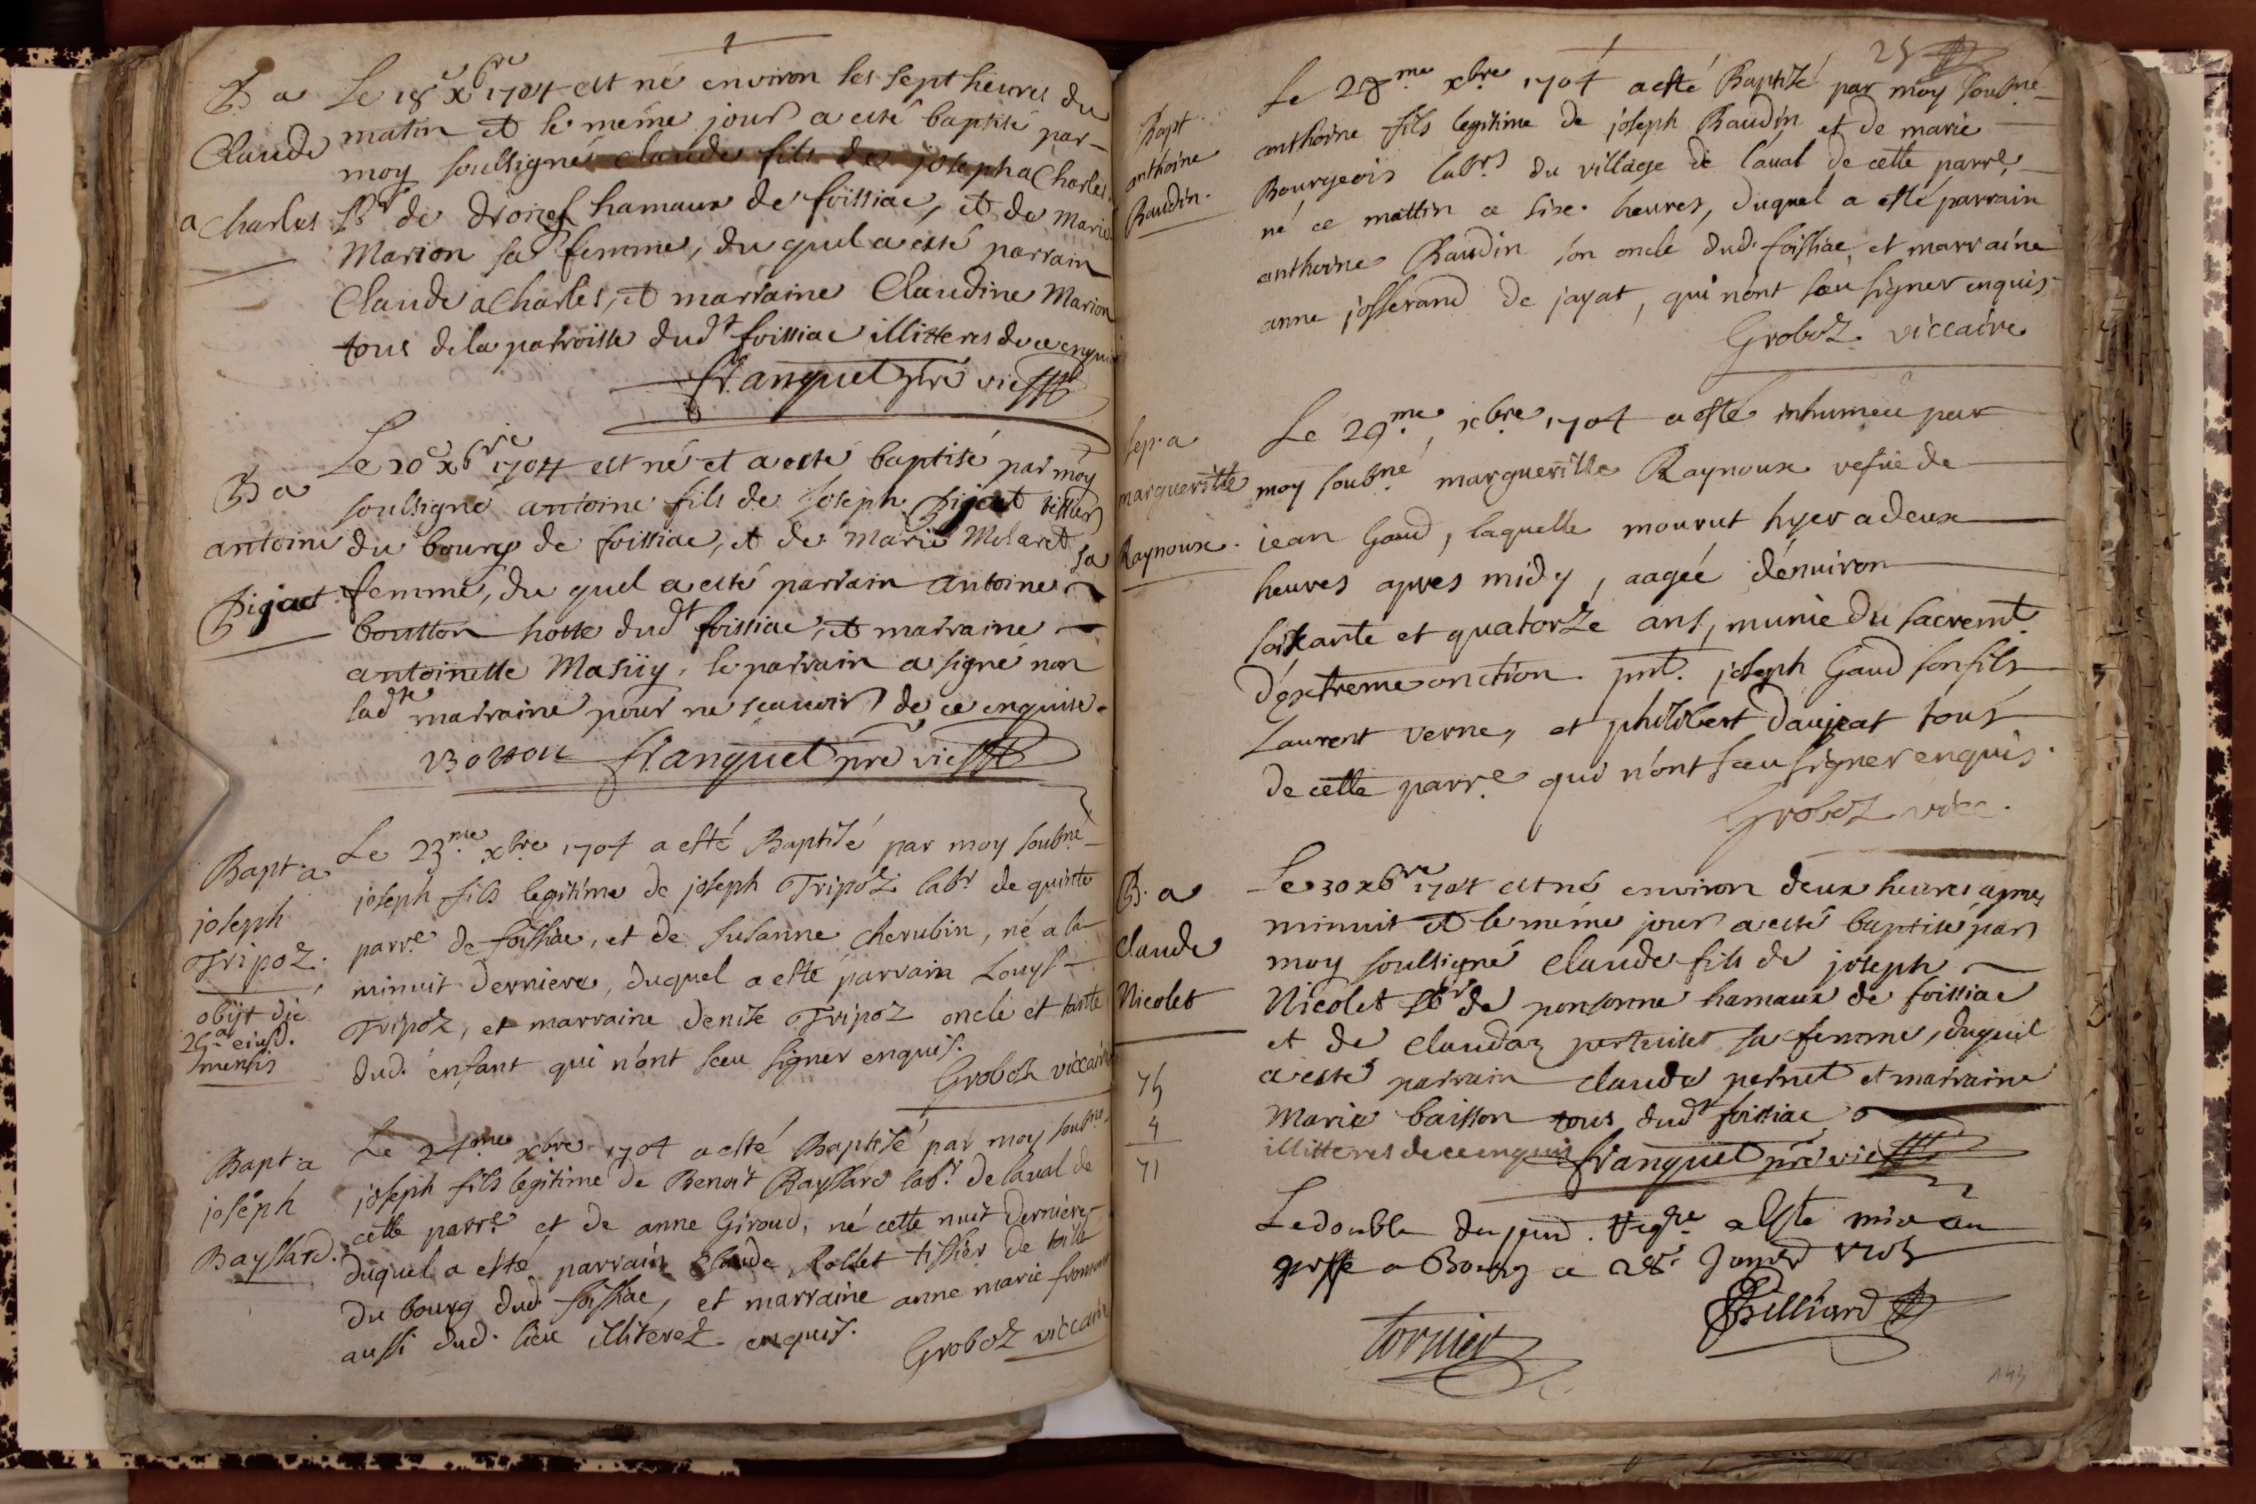 B a
Claude
a Charles
Le 18e xbre 1704 est né environ les sept heures du
matin et le même jour a esté baptisé par
moy soussigné Claude fils de joseph a Charles
de hamaux de foissiac, et de Marie
Marion sa femme, du quel a esté parrain
Claude a Charles, et marraine Claudine Marion
tous de la parroisse dudt foissiac illitteres de ce enquis
franquet pre vic
B a
antoine
Pigaet
Le 20e xbre 1704 est né et a esté baptisé par moy
soussigné antoine fils de Joseph tissier
du bourg de foissiac, et de Marie Melaret sa
femme, du quel a esté parrain Antoine
boutton hoste dudt foissiac, et marraine
antoinette Masüy, le parrain a signé non
ladte marraine pour ne scauoir de ce enquise.
Botton franquet pre vic
Bapt. a
joseph
Tripoz.
obijt die
26a eiusd.
mensis
Le 23.me xbre 1704 a esté Baptisé par moy soubné
joseph fils legitime de joseph Tripoz labr de
parre de foissiac, et de susanne cherubin, né a la
minuit derniere, duquel a esté parrain Louys
Tripoz, et marraine denise Tripoz oncle et tante
dud. enfant qui n'ont sceu signer enquis.
Groboz viccaire
Bapt. a
joseph
Bayssard.
Le 24.me xbre 1704 a esté Baptisé par moy soubné
joseph fils legitime de Benoit Bayssard labr. de laual de
cette parre et de anne Giroud, né cette nuit derniere
duquel a esté parrain Claude Rollet tissier de toille
du bourg dud. foissiac, et marraine anne marie
aussi dud. lieu illiterez enquis.
Groboz viccaire
25
Bapt.
anthoine
Baudin.
Le 28me xbre 1704 a esté Baptisé par moy soubné
anthoine fils legitime de joseph Baudin et de marie
Bourgeois labrs du village de laual de cette parre,
né ce mattin a sixe heures, duquel a esté parrain
anthoine Baudin son oncle dud. foissiac, et marraine
anne josserand de jayat, qui n'ont sceu signer enquis
Groboz viccaire
sep. a
margueritte
Raynoux.
Le 29.me, xbre 1704 a esté inhumeé par
moy soubné margueritte Raynoux vefue de
jean Gaud, laquelle mourut hyer a deux
heures apres midy, aageé d'enuiron
soixante et quatorze ans, munie du sacremt.
d'extreme onction. pnt. joseph Gaud son fils
Laurent Verney et philibert daujeat tous
de cette parre qui n'ont sceu signer enquis.
Groboz vicc.
B. a
Claude
Nicolet
Le 30 xbre 1704 est né environ deux heures apres
minuit et le même jour a esté baptisé par
moy soussigné Claude fils de joseph
Nicolet lbr de ponsonne hamaux de foissiac
et de Claudaz sa femme, duquel
a esté parrain Claude pernet et marraine
Marie baisson tous dudt foissiac
illitteres de ce enquis franquet pre vic
75
4
71
Le double du pnd. Regre a Esté mis au
greffe a Bourg ce 28e Janvr 1705
tornier
Billiard
143